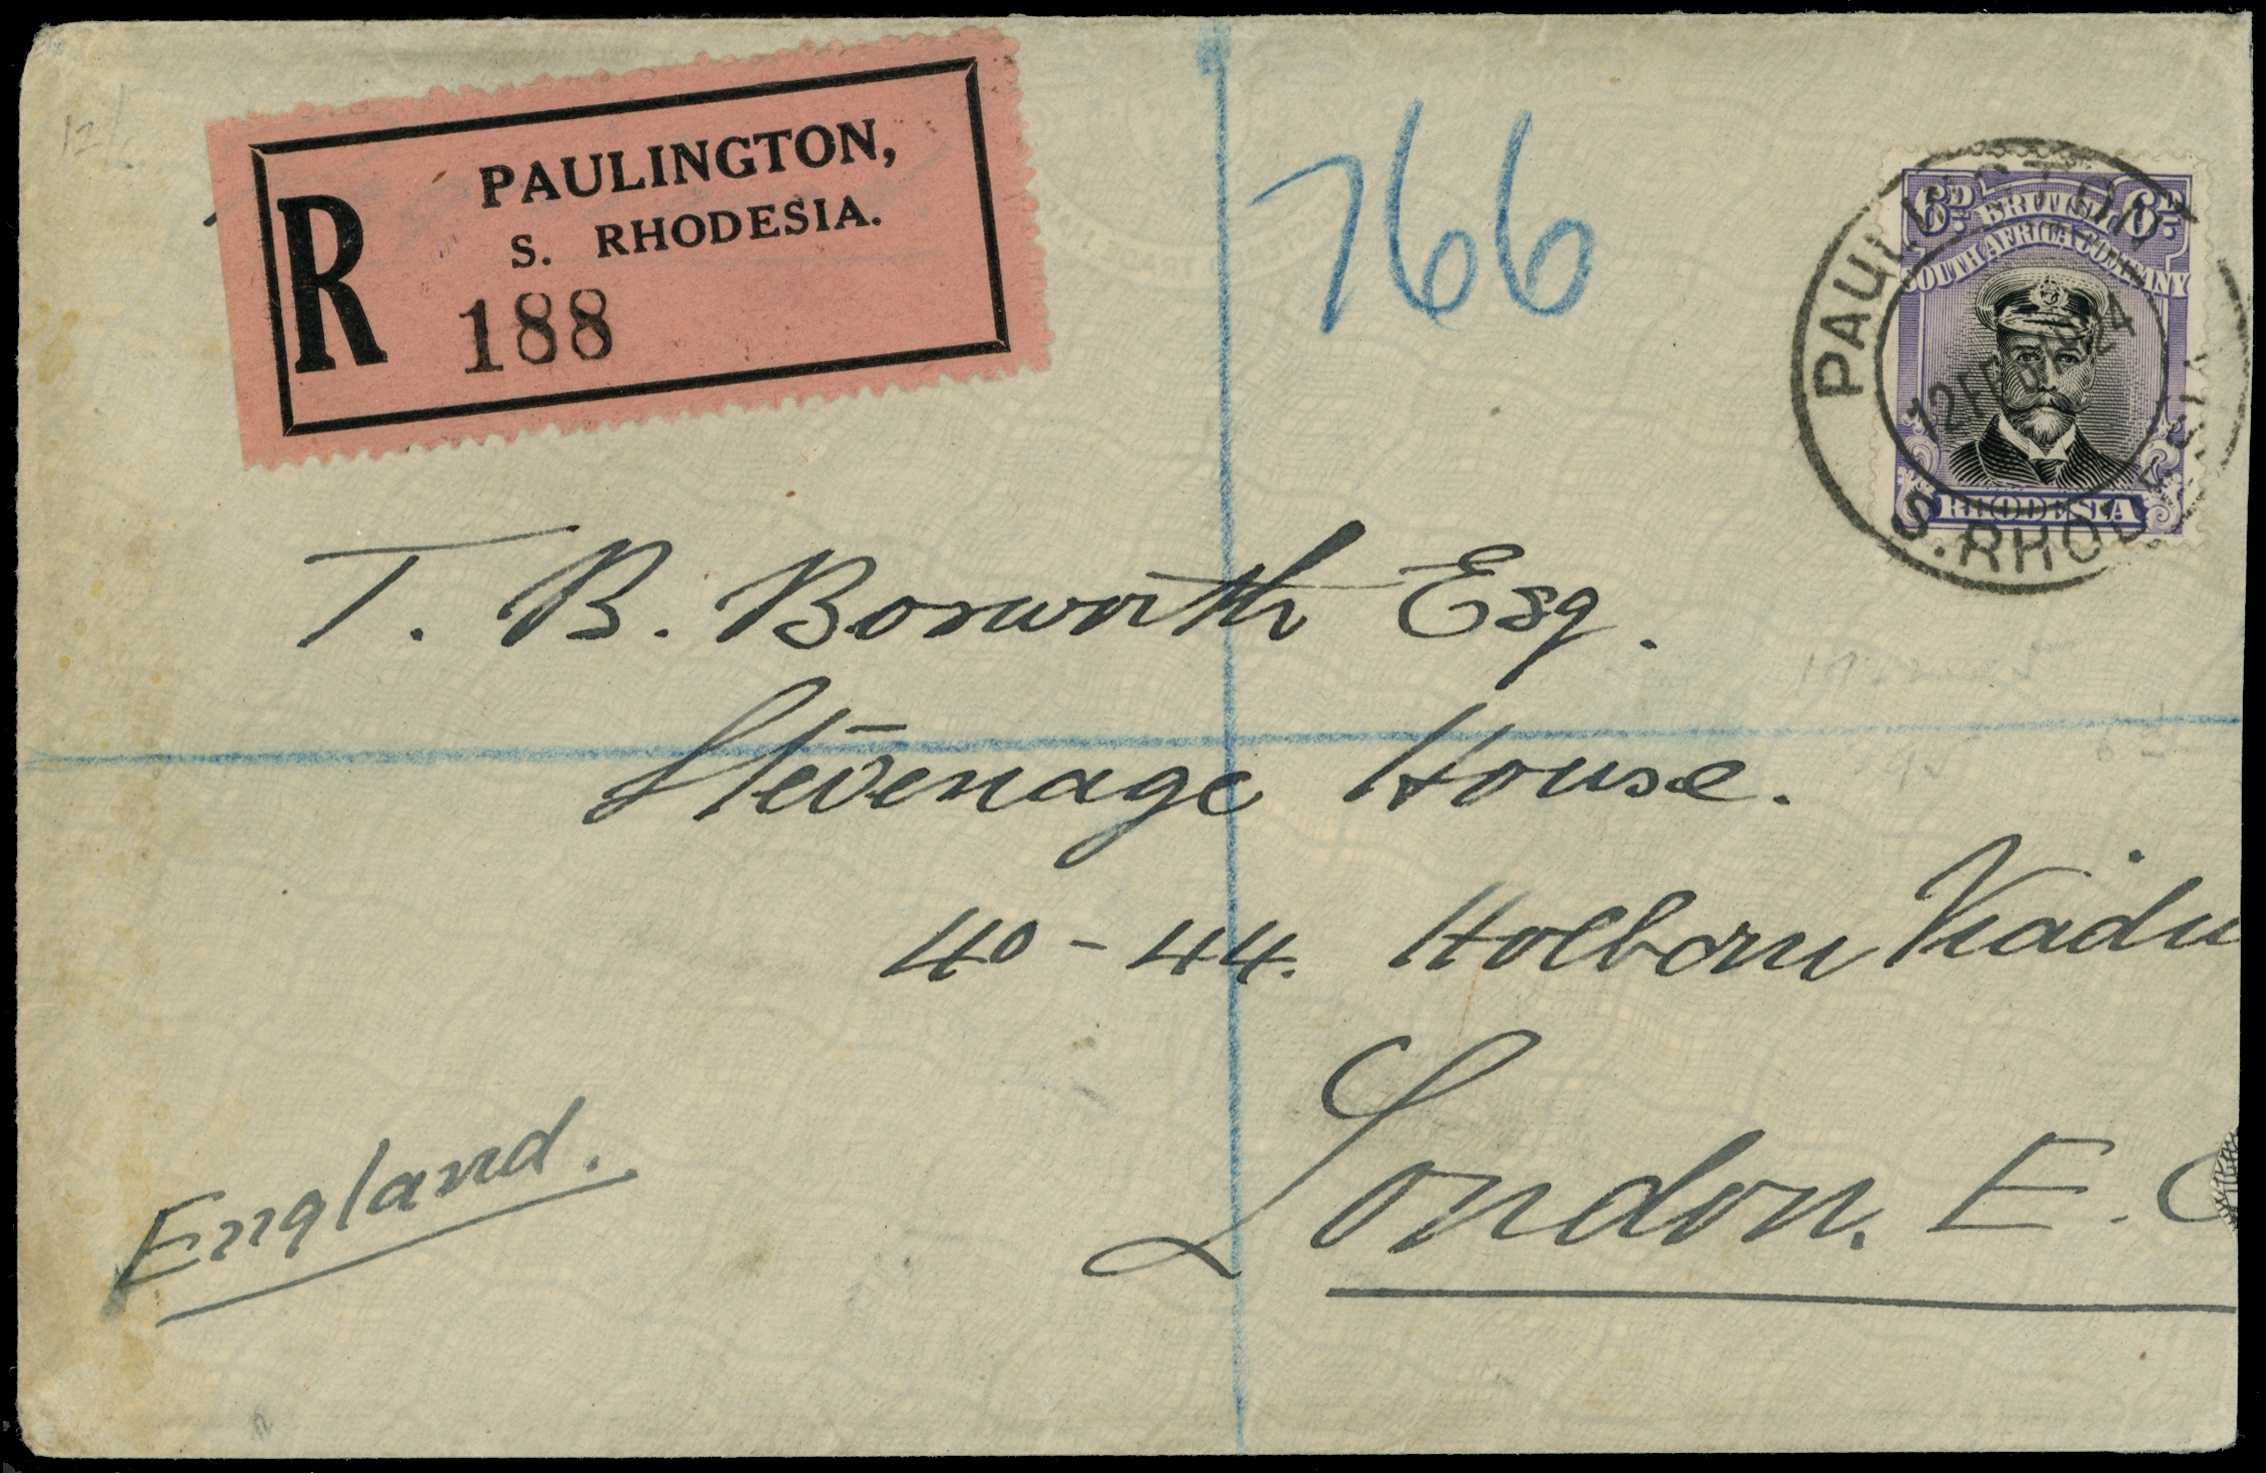 R
PAULINGTON,
S. RHODESIA.
188
766
6D 6D
BRITISH
SOUTH AFRICA COMPANY
RHODESIA
PAULINGTON
12 FEB 24
S. RHODESIA
T. B. Bosworth Esq.
Stevenage House.
40-44. Holborn Viadu
London. E. C
England.